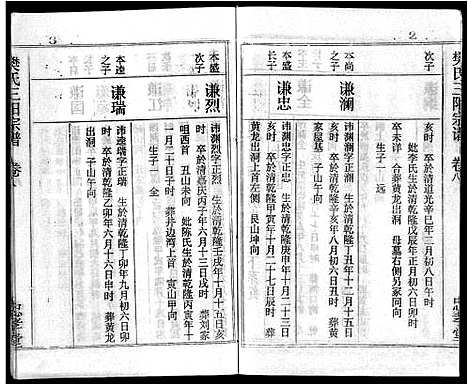 樊氏三陽宗譜 卷八
2
亥時 卒於清道光辛巳年二月初八日午時
妣李氏生於清乾隆戊辰年正月初六日
卒未洋 合葬黄龙出洞 母墓右侧另冢同向
生子一 远
本尚次子
谦澜
沛澜字正 生於清乾隆丁丑年十二月十五日
亥時 卒於清乾隆 年八月初六日丑時 葬
家屋基 子山午向
谦忠
沛渊渊字正 生於清乾隆庚申年十月二十三日
辰時 卒於清乾隆甲寅年十一月二十七日辰時
黄龙出洞上首左侧 艮山坤向
3
本盛次子
谦烈
沛渊烈字正烈 生於清乾隆壬戌年十月十五日亥
時 卒於清嘉庆丙子年六月十三日戌時 葬刘家
咀西首 丑山未向 妣陈氏生於清乾隆丙寅年十
一月二十日子時 葬手边湾上首 寅山甲向
生子一 全
本逵之子
谦瑞
沛逵瑞字正瑞 生於清乾隆丁卯年九月初六日卯
時 卒於清乾隆乙卯年六月十六日申時 葬黄龙
出洞 子山午向
樊氏三陽宗譜 卷八